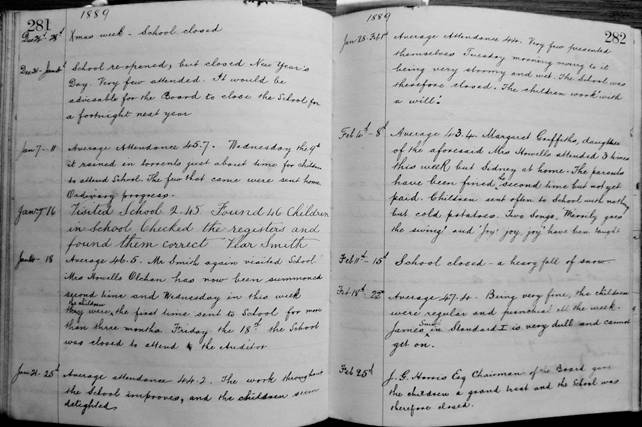 281
1889
Dec 24th 28th
Xmas week - School closed
Dec 31 - Jan
School re-opened, but closed New Year's
Day. Very few attended. It would be
advisable for the Board to close the School for
a fortnight next year
Jan 7 - 11
Average Attendance 45.7. Wednesday the 9th
it rained in torrents just about time for children
to attend School. The few that came were sent home
Ordinary progress.
Jany 16
Visited School 2.45 Found 46 Children
in School Checked the registers and
found them correct Smith
18
Average 46.5. Mr Smith again visited School
Mrs Howells has now been summoned
second time and Wednesday in this week
the children
were, the first time sent to School for more
than three months. Friday the 18th the School
was closed to attend the Auditor
Jan 21 - 25th
Average attendance 44.2. The work throughout
the School improves, and the children seem
delighted
1889
282
Jan 28 - 31st
Average Attendance 44. Very few presented
themselves Tuesday morning owing to it
being very stormy and wet. The School was
therefore closed. The children work with
a will.
Feb 4th - 8th
Average 43.4. Margaret Griffiths, daughter
of the aforesaid Mrs Howells attended 3 times
this week but Sidney at home. The parents
have been fined, second time but not yet
paid. Children sent often to School with nothing
but cold potatoes. Two Songs, 'Merrily goes
the swing' and 'joy! joy, joy' have been taught
Feb 11th - 15th
School closed - a heavy fall of snow
Feb 18th - 22nd
Average 47.4. Being very fine, the children
were regular and punctual all the week.
Smith
James in Standard I is very dull and cannot
get on.
Feb 25th
J. G. Harris Esq Chairman of the Board gave
the children a grand treat and the School was
therefore closed.